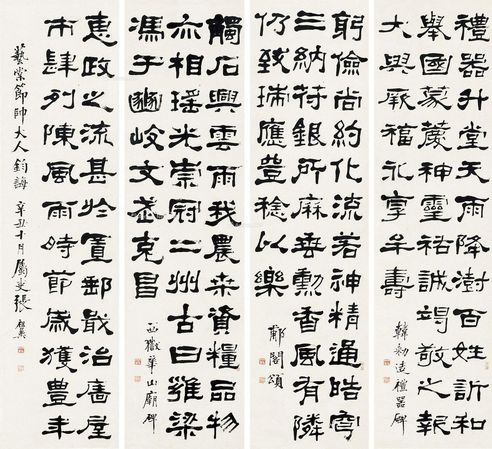 禮器升堂天雨降澍百姓訢和
舉國蒙慶神靈祐誠竭敬之報
天與厥福永享牟壽
韓勑造禮器碑
躬儉尚約化流若神精通晧穹
三納符銀所歷垂勳香風有隣
仍致瑞應豐稔以樂
郙閣頌
觸石興雲雨我農桑資糧品物
亦相瑤光崇冠二州古曰雍梁
馮于豳岐文武克昌
西嶽華山廟碑
惠政之流甚於置郵戢治廧屋
市肆列陳風雨時節歲獲豐年
藝棠節帥大人鈞誨 辛丑十月屬吏張